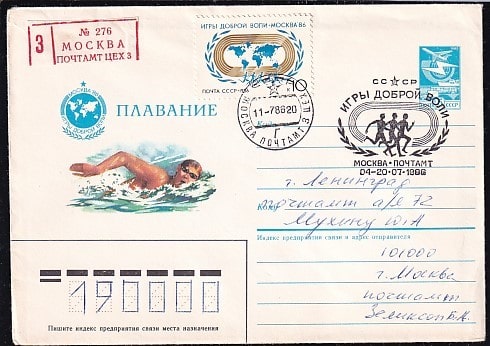 З
№ 276
МОСКВА
ПОЧТАМТ ЦЕХ 3
ИГРЫ ДОБРОЙ ВОЛИ • МОСКВА'86
ПОЧТА СССР • 1986
10
МОСКВА ПОЧТАМТ
11-78620
Г
ПОЧТА СССР
СС☆СР
ИГРЫ ДОБРОЙ ВОЛИ
МОСКВА • ПОЧТАМТ
04-20•07•1986
МОСКВА 1986
ИГРЫ ДОБРОЙ ВОЛИ
ПЛАВАНИЕ
г. Ленинград
почтамт а/я 72
Кому
Мухину Ю.А
Индекс предприятия связи и адрес отправителя
101000
г. Москва
почтамт
190000
Пишите индекс предприятия связи места назначения